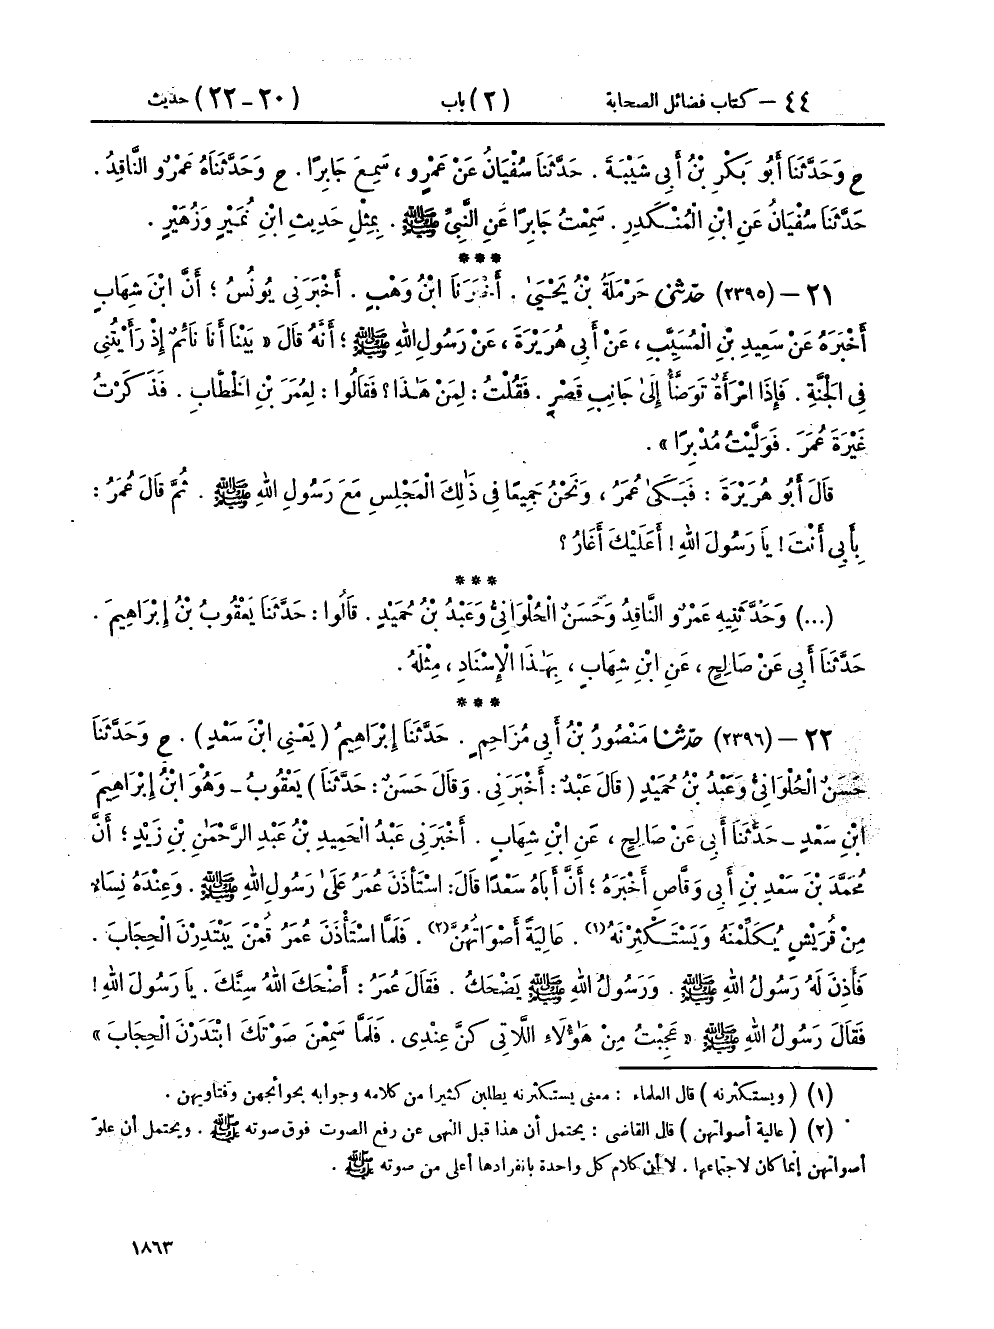 ٤٤ – كتاب فضائل الصحابة (٢) باب (٢٠-٢٢) حديث
ح وَحَدَّثَنَا أَبُو بَكْرِ بْنُ أَبِي شَيْبَةَ . حَدَّثَنَا سُفْيَانُ عَنْ عَمْرٍو ، سَمِعَ جَابِرًا . ح وَحَدَّثَنَاهُ عَمْرٌو النَّاقِدُ .
حَدَّثَنَا سُفْيَانُ عَنِ ابْنِ الْمُنْكَدِرِ . سَمِعْتُ جَابِرًا عَنِ النَّبِيِّ ﷺ . بِمِثْلِ حَدِيثِ ابْنِ نُمَيْرٍ وَزُهَيْرٍ .
***
٢١ – (٢٣٩٥) حَدَّثَنِي حَرْمَلَةُ بْنُ يَحْيَىٰ . أَخْبَرَنَا ابْنُ وَهْبٍ . أَخْبَرَنِي يُونُسُ ؛ أَنَّ ابْنَ شِهَابٍ
أَخْبَرَهُ عَنْ سَعِيدِ بْنِ الْمُسَيَّبِ ، عَنْ أَبِي هُرَيْرَةَ ، عَنْ رَسُولِ اللهِ ﷺ ؛ أَنَّهُ قَالَ « بَيْنَا أَنَا نَائِمٌ إِذْ رَأَيْتُنِي
فِي الْجَنَّةِ . فَإِذَا امْرَأَةٌ تَوَضَّأُ إِلَىٰ جَانِبِ قَصْرٍ . فَقُلْتُ : لِمَنْ هَٰذَا ؟ فَقَالُوا : لِعُمَرَ بْنِ الْخَطَّابِ . فَذَكَرْتُ
غَيْرَةَ عُمَرَ . فَوَلَّيْتُ مُدْبِرًا » .
قَالَ أَبُو هُرَيْرَةَ : فَبَكَىٰ عُمَرُ ، وَنَحْنُ جَمِيعًا فِي ذَٰلِكَ الْمَجْلِسِ مَعَ رَسُولِ اللهِ ﷺ . ثُمَّ قَالَ عُمَرُ :
بِأَبِي أَنْتَ ! يَا رَسُولَ اللهِ ! أَعَلَيْكَ أَغَارُ ؟
***
(...) وَحَدَّثَنِيهِ عَمْرٌو النَّاقِدُ وَحَسَنٌ الْحُلْوَانِيُّ وَعَبْدُ بْنُ حُمَيْدٍ . قَالُوا : حَدَّثَنَا يَعْقُوبُ بْنُ إِبْرَاهِيمَ .
حَدَّثَنَا أَبِي عَنْ صَالِحٍ ، عَنِ ابْنِ شِهَابٍ ، بِهَٰذَا الْإِسْنَادِ ، مِثْلَهُ .
***
٢٢ – (٢٣٩٦) حَدَّثَنَا مَنْصُورُ بْنُ أَبِي مُزَاحِمٍ . حَدَّثَنَا إِبْرَاهِيمُ (يَعْنِي ابْنَ سَعْدٍ) . ح وَحَدَّثَنَا
حَسَنٌ الْحُلْوَانِيُّ وَعَبْدُ بْنُ حُمَيْدٍ (قَالَ عَبْدٌ : أَخْبَرَنِي . وَقَالَ حَسَنٌ : حَدَّثَنَا) يَعْقُوبُ - وَهُوَ ابْنُ إِبْرَاهِيمَ
ابْنِ سَعْدٍ - حَدَّثَنَا أَبِي عَنْ صَالِحٍ ، عَنِ ابْنِ شِهَابٍ . أَخْبَرَنِي عَبْدُ الْحَمِيدِ بْنُ عَبْدِ الرَّحْمَٰنِ بْنِ زَيْدٍ ؛ أَنَّ
مُحَمَّدَ بْنَ سَعْدِ بْنِ أَبِي وَقَّاصٍ أَخْبَرَهُ ؛ أَنَّ أَبَاهُ سَعْدًا قَالَ : اسْتَأْذَنَ عُمَرُ عَلَىٰ رَسُولِ اللهِ ﷺ . وَعِنْدَهُ نِسَاءٌ
مِنْ قُرَيْشٍ يُكَلِّمْنَهُ وَيَسْتَكْثِرْنَهُ(١) . عَالِيَةً أَصْوَاتُهُنَّ(٢) . فَلَمَّا اسْتَأْذَنَ عُمَرُ قُمْنَ يَبْتَدِرْنَ الْحِجَابَ .
فَأَذِنَ لَهُ رَسُولُ اللهِ ﷺ . وَرَسُولُ اللهِ ﷺ يَضْحَكُ . فَقَالَ عُمَرُ : أَضْحَكَ اللهُ سِنَّكَ . يَا رَسُولَ اللهِ !
فَقَالَ رَسُولُ اللهِ ﷺ « عَجِبْتُ مِنْ هَٰؤُلَاءِ اللَّاتِي كُنَّ عِنْدِي . فَلَمَّا سَمِعْنَ صَوْتَكَ ابْتَدَرْنَ الْحِجَابَ »
(١) (ويستكثرنه) قال العلماء : معنى يستكثرنه يطلبن كثيرا من كلامه وجوابه بحوائجهن وفتاويهن .
(٢) (عالية أصواتهن) قال القاضى : يحتمل أن هذا قبل النهى عن رفع الصوت فوق صوته ﷺ . ويحتمل أن علوّ
أصواتهن إنما كان لاجتماعها . لا أن كلام كل واحدة بانفرادها أعلى من صوته ﷺ .
١٨٦٣